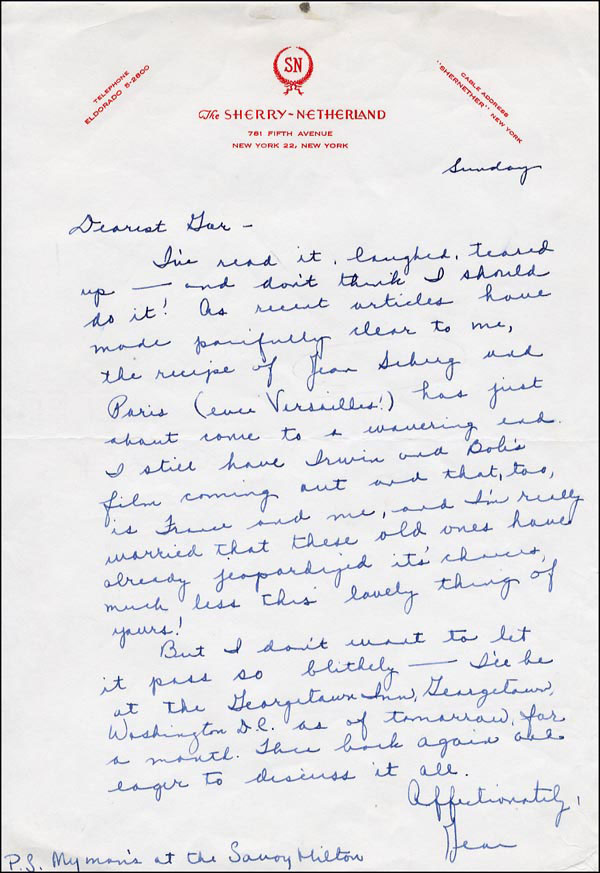 SN
TELEPHONE
ELDORADO 5-2800
CABLE ADDRESS
"SHERNETHER" NEW YORK
The SHERRY-NETHERLAND
781 FIFTH AVENUE
NEW YORK 22, NEW YORK
Sunday
Dearest Gar -
I've read it, laughed, teared
up — and don't think I should
do it! As recent articles have
made painfully clear to me,
the recipe of Jean Seberg and
Paris (even Versailles!) has just
about come to a wavering end.
I still have Irwin and Bob's
film coming out and that, too,
is France and me, and I'm really
worried that these old ones have
already jeopardized it's chances,
much less this lovely thing of
yours!
But I don't want to let
it pass so blithely — I'll be
at the Georgetown Inn, Georgetown,
Washington D.C. as of tomorrow, for
a month. Then back again and
eager to discuss it all.
Affectionately,
Jean
P.S. My mom's at the Savoy Hilton